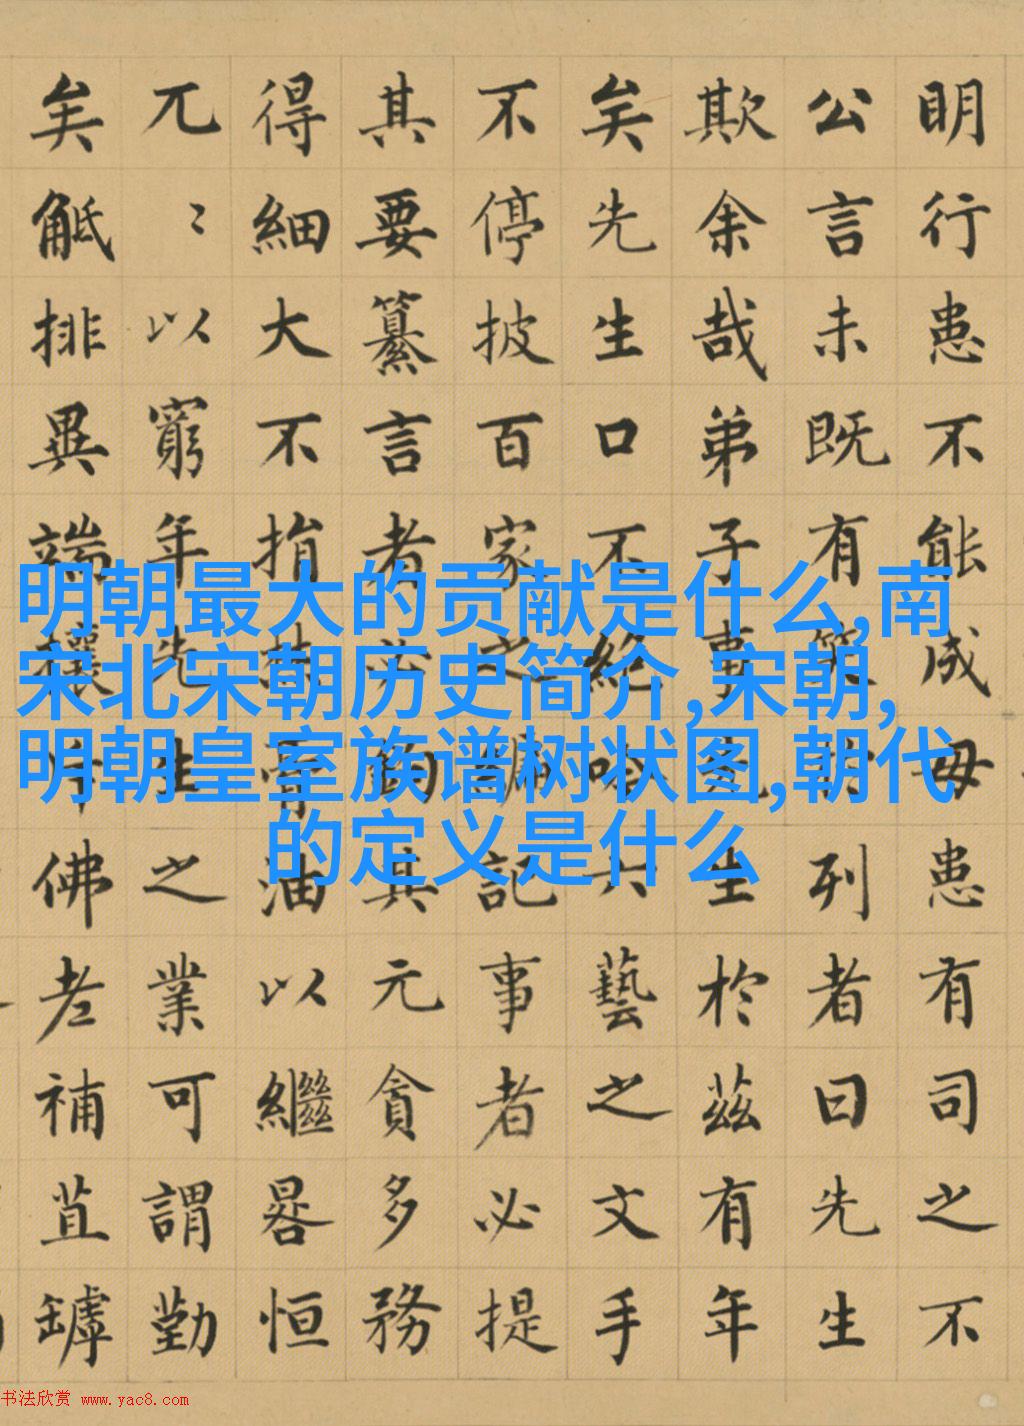 明行患不能成毋患有司之不
公言未既有笑於列者曰先生
欺余哉弟子事先生於茲有年
矣先生口不絕吟六藝之文手
不停披百家之編記事者必提
其要纂言者必鈎其元貪多務
得細大不捐焚膏油以繼晷恒
兀〻以窮年先生之業可謂勤
矣觝排異端攘斥佛老補苴罅
明朝最大的贡献是什么,南
宋北宋朝历史简介,宋朝,
明朝皇室族谱树状图,朝代
的定义是什么
书法欣赏 www.yac8.com